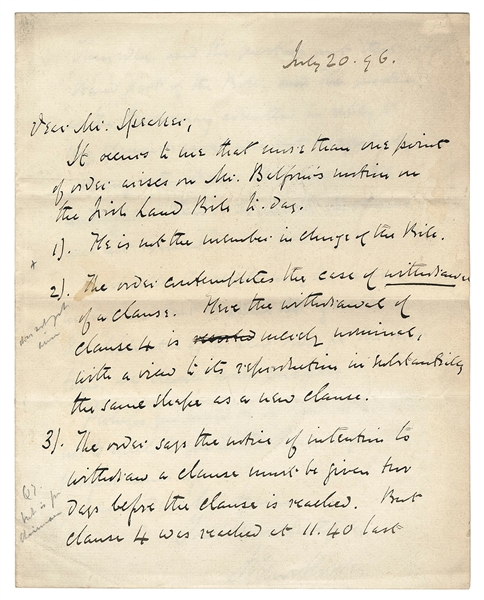 July 20. 96.
Dear Mr. Speaker,
It occurs to me that more than one point
of order arises on Mr. Balfour's motion on
the Irish Land Bill to-day.
1). He is not the member in charge of the Bill.
2). The order contemplates the case of withdrawal
of a clause. Here the withdrawal of
clause 4 is merely nominal,
with a view to its reproduction in substantially
the same shape as a new clause.
3). The order says the notice of intention to
withdraw a clause must be given two
days before the clause is reached. But
clause 4 was reached at 11.40 last